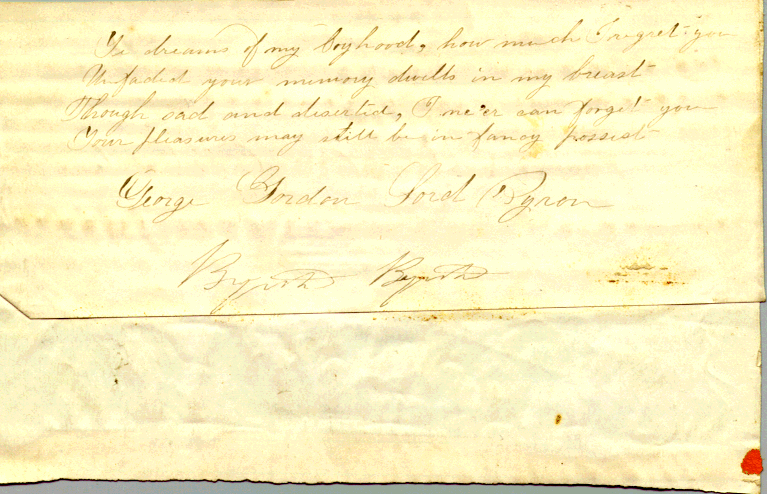 Ye dreams of my boyhood, how much I regret you
Unfaded your memory dwells in my breast
Though sad and deserted, I ne'er can forget you
Your pleasures may still be in fancy possest
George Gordon Lord Byron